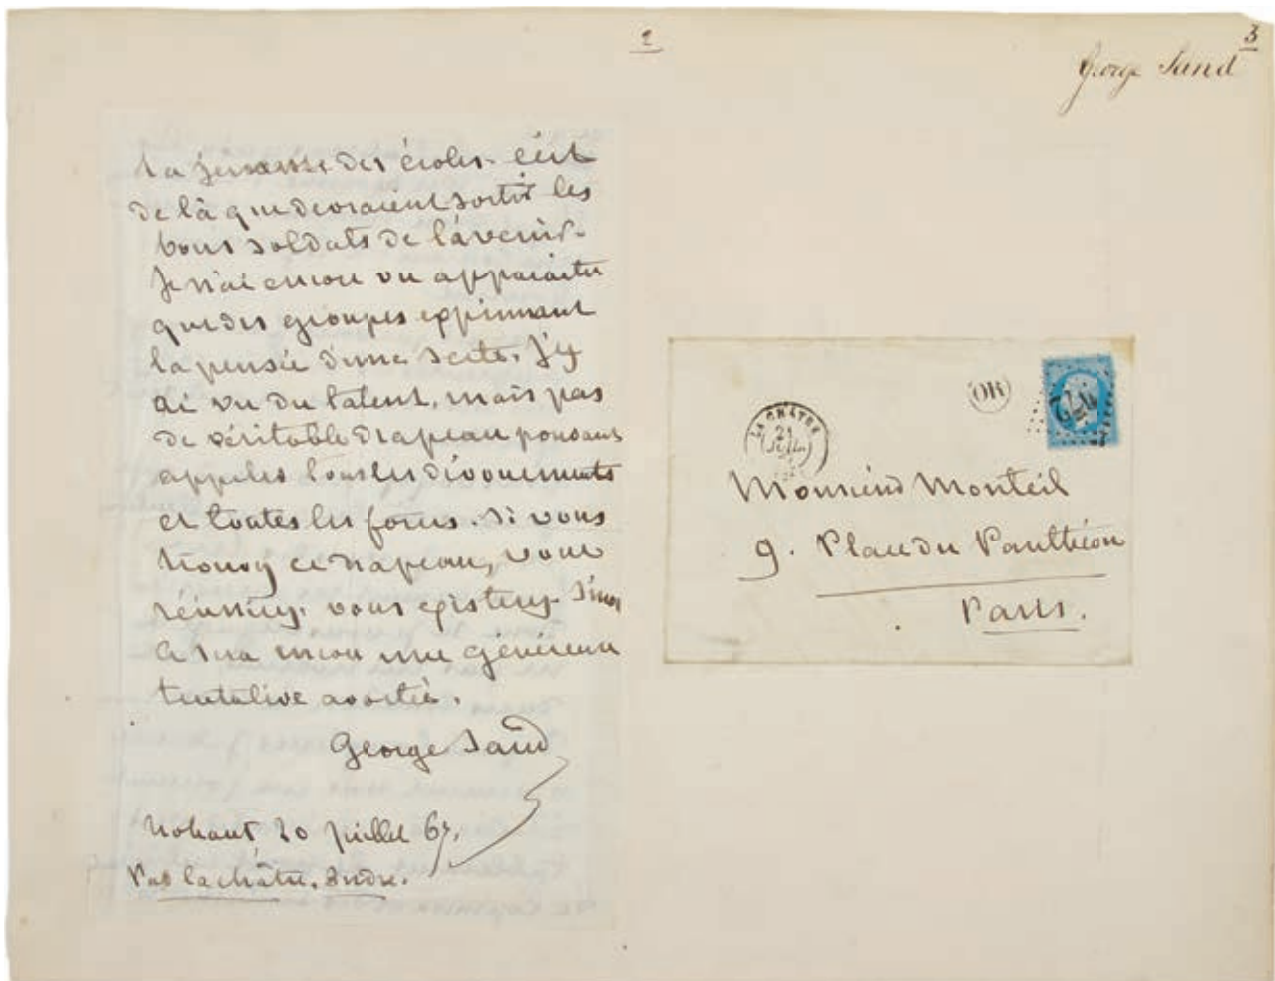 2
3
George Sand
la jeunesse des écoles. c'est
de là que devraient sortir les
bons soldats de l'avenir.
Je n'ai encore vu apparaitre
que des groupes exprimant
la pensée d'une secte. J'y
ai vu du talent, mais pas
de véritable drapeau pouvant
appeler tous les dévouements
et toutes les forces. Si vous
trouvez ce drapeau, vous
réussirez. vous existerez. Sinon
ce sera encore une généreuse
tentative avortée.
George Sand
Nohant 20 juillet 67.
Par la châtre. Indre.
LA CHÂTRE
21
JUIL.
OR
Monsieur Monteil
9. Place du Panthéon
Paris.